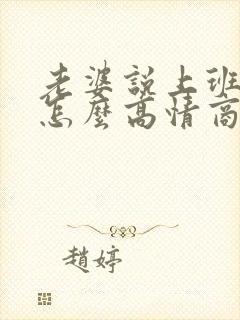 老婆說上班
怎麼高情商
趙婷